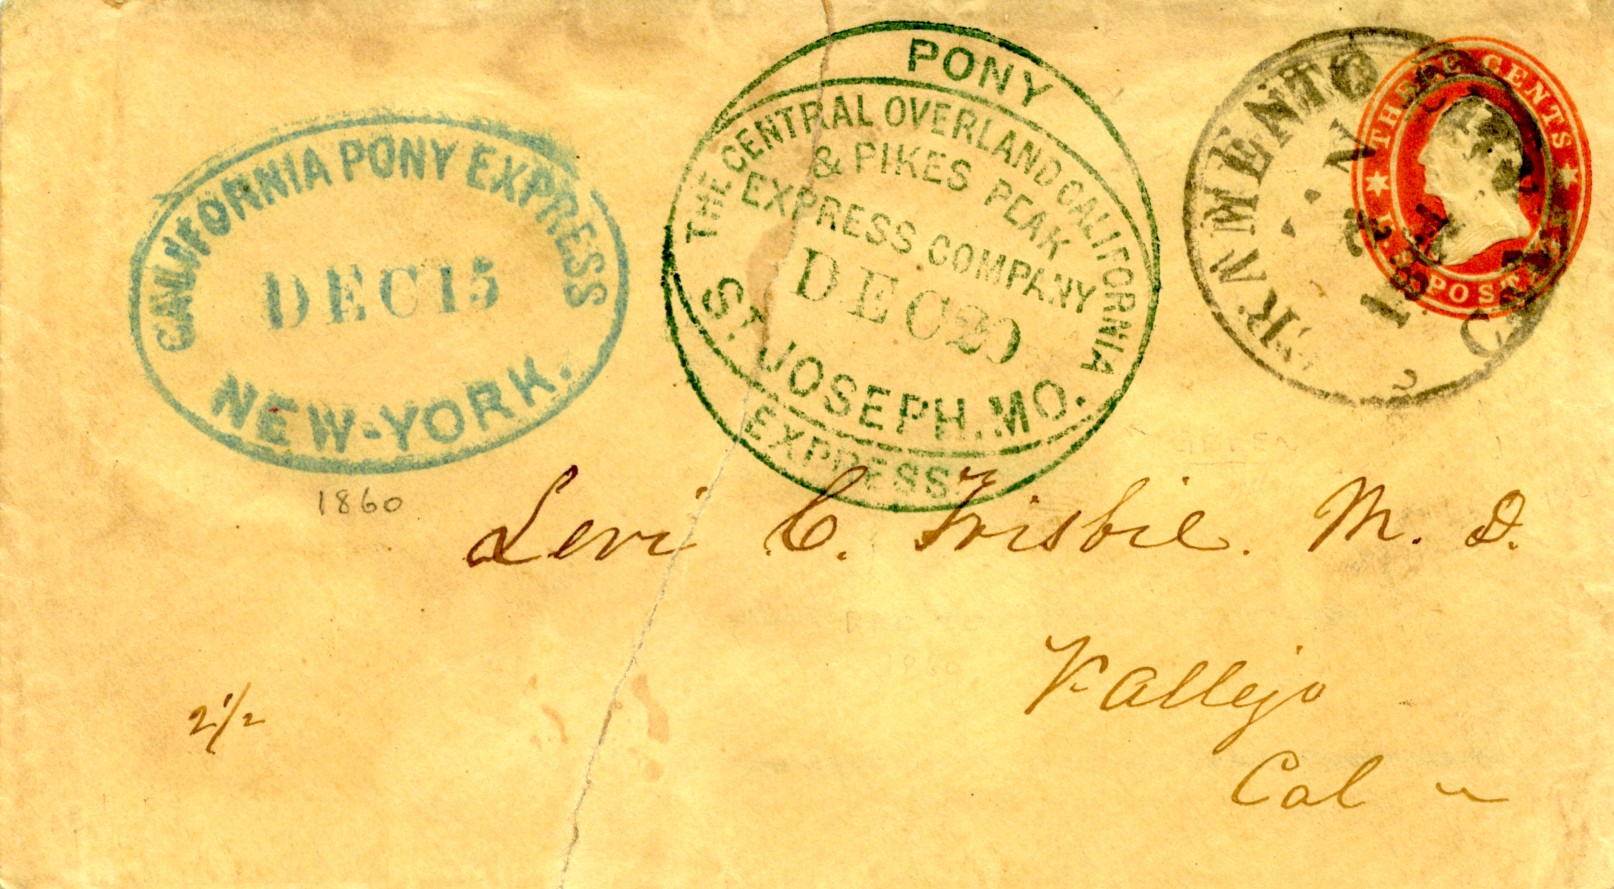 CALIFORNIA PONY EXPRESS
DEC 15
NEW-YORK.
1860
PONY
THE CENTRAL OVERLAND CALIFORNIA
& PIKES PEAK
EXPRESS COMPANY
DEC 20
ST. JOSEPH, MO.
EXPRESS
THREE CENTS
POST
Levi C. Frisbie. M. D.
Vallejo
Cal
2 1/2